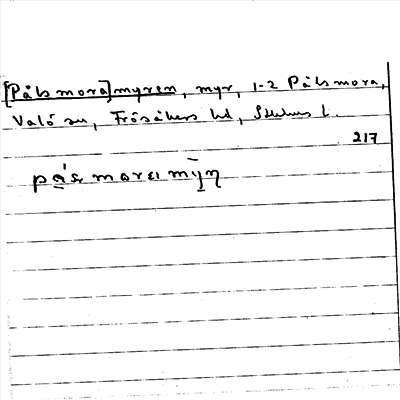 [Påls mora]myren, myr, 1-2 Pålsmora,
Valö sn, Frösåkers hd, Sthlms l.
217